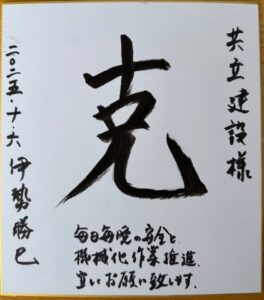 共立建設様
克
毎日毎晩の安全と
機械化作業推進、
宜しくお願い致します。
二〇二五・十・六 伊勢勝巳